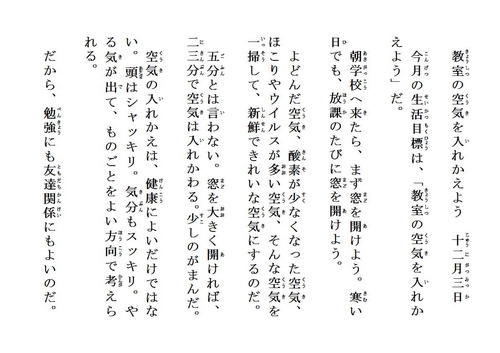 教室の空気を入れかえよう　十二月三日
今月の生活目標は、「教室の空気を入れか
えよう」だ。
朝学校へ来たら、まず窓を開けよう。寒い
日でも、放課のたびに窓を開けよう。
よどんだ空気、酸素が少なくなった空気、
ほこりやウイルスが多い空気、そんな空気を
一掃して、新鮮できれいな空気にするのだ。
五分とは言わない。窓を大きく開ければ、
二三分で空気は入れかわる。少しのがまんだ。
空気の入れかえは、健康によいだけではな
い。頭はシャッキリ。気分もスッキリ。や
る気が出て、ものごとをよい方向で考えら
れる。
だから、勉強にも友達関係にもよいのだ。